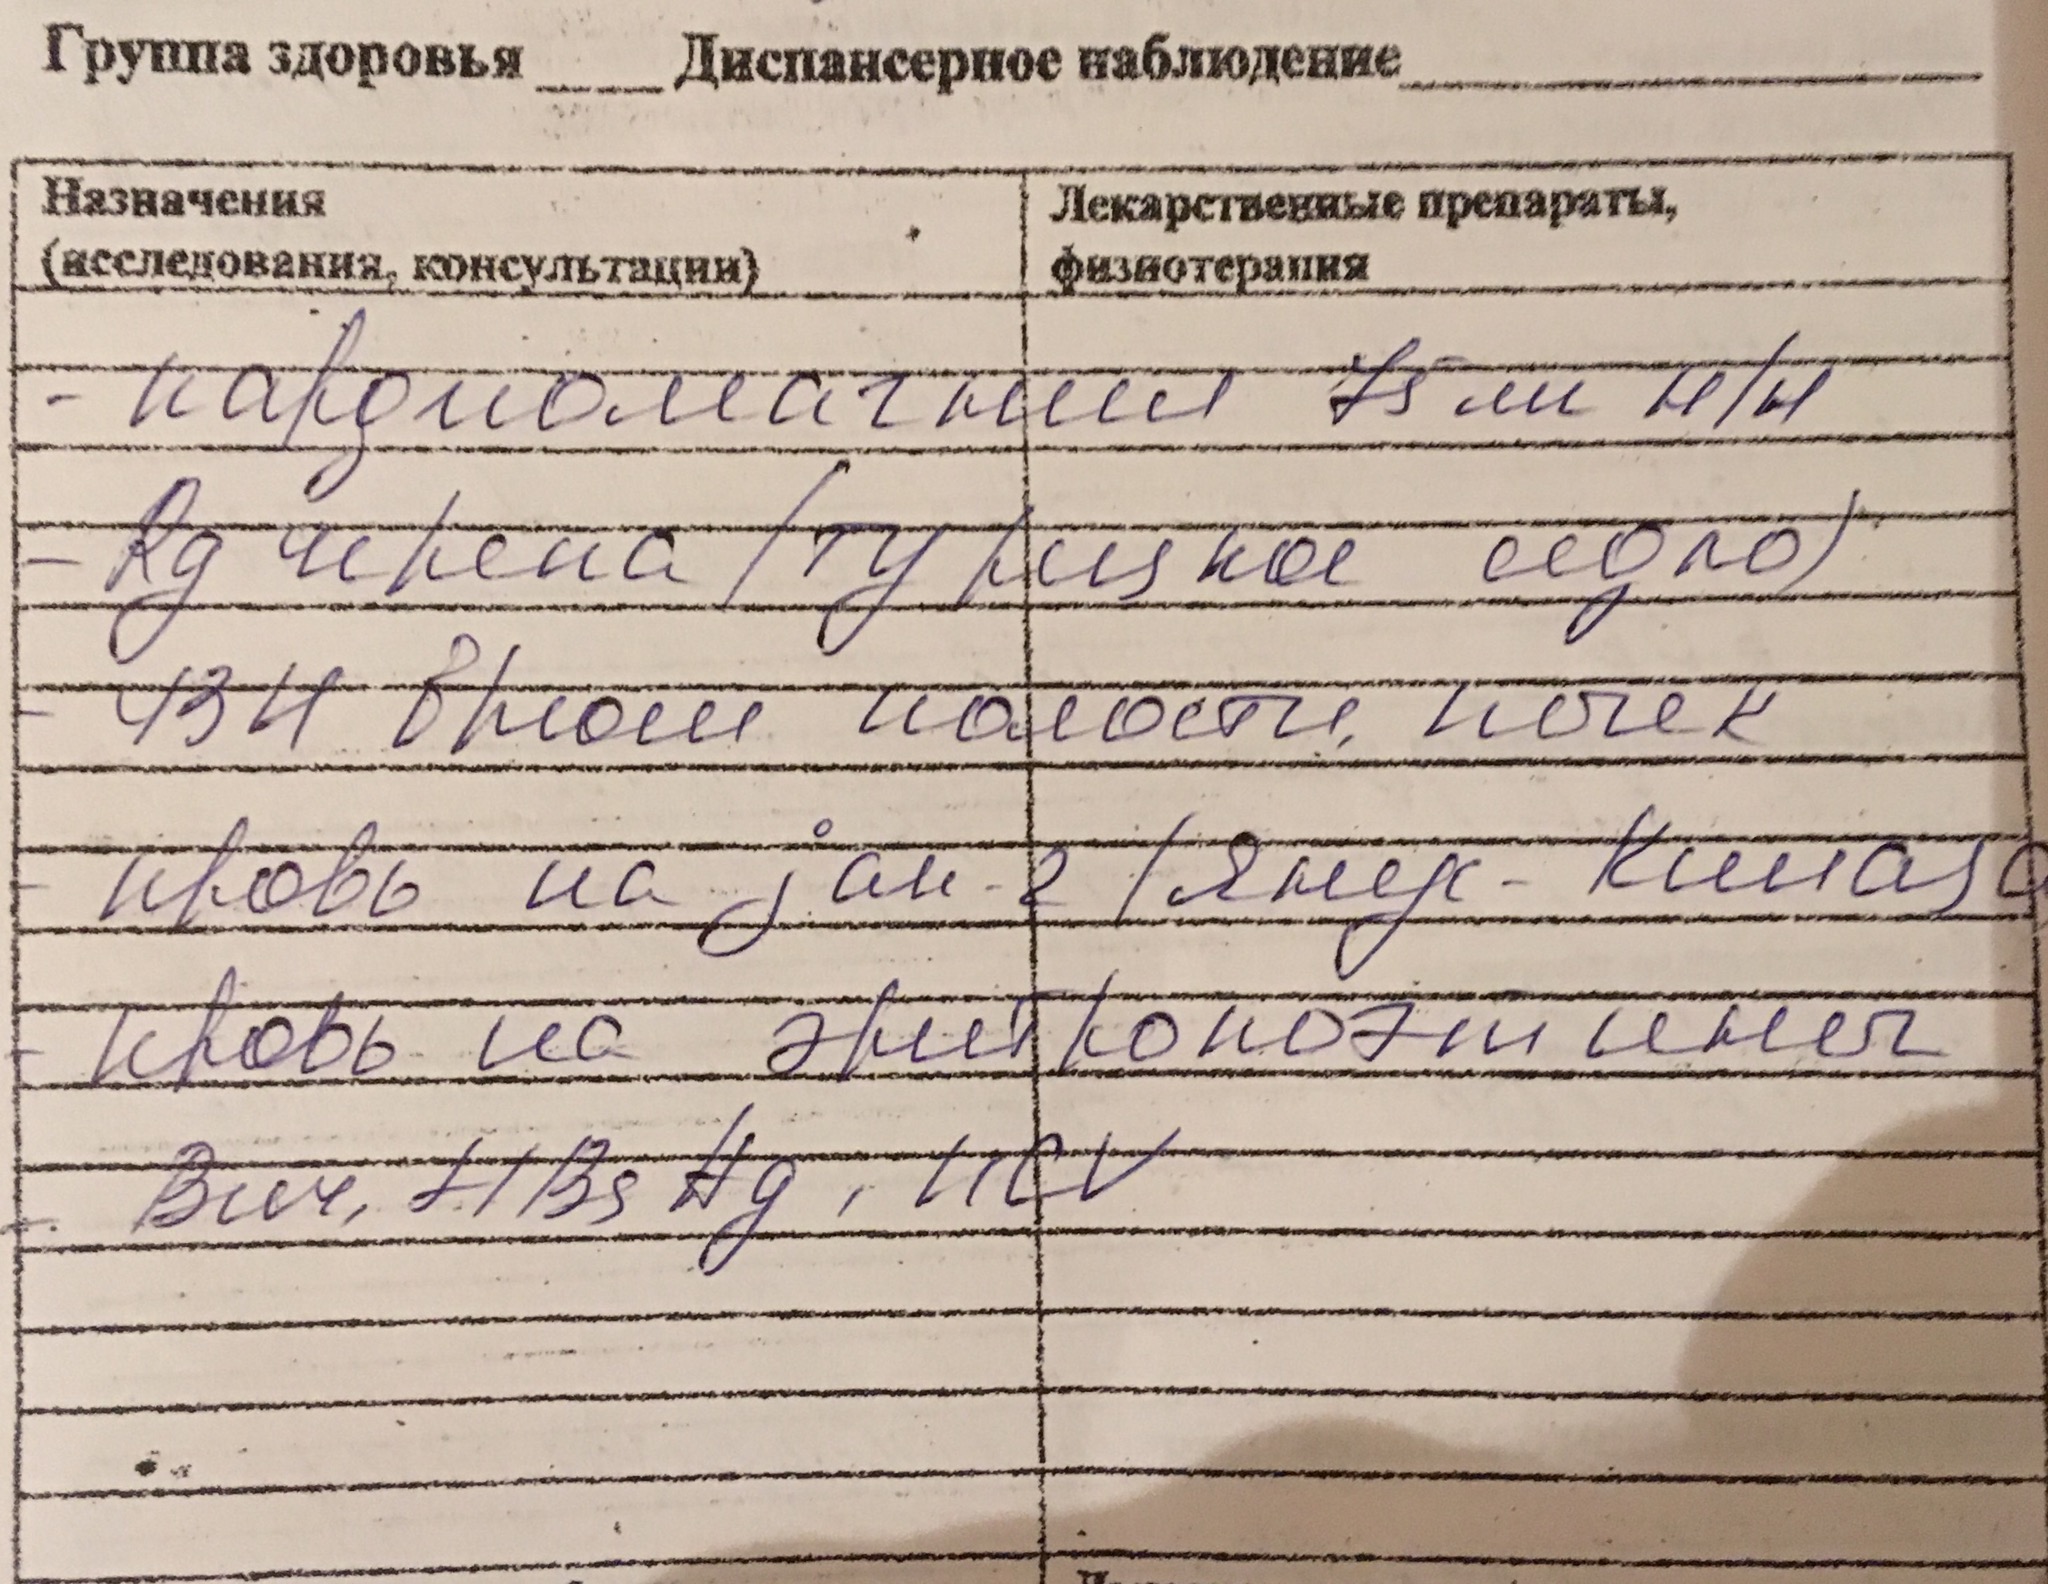 Группа здоровья ____ Диспансерное наблюдение ____
Назначения
(исследования, консультации)
Лекарственные препараты,
физиотерапия
- кардиомагнил 75 мг н/н
- Rg черепа (турецкое седло)
- УЗИ брюш полости, почек
- кровь на jak-2 (Янус-Киназа
- кровь на эритропоэтинемг
- Вич, HBsAg, HCV